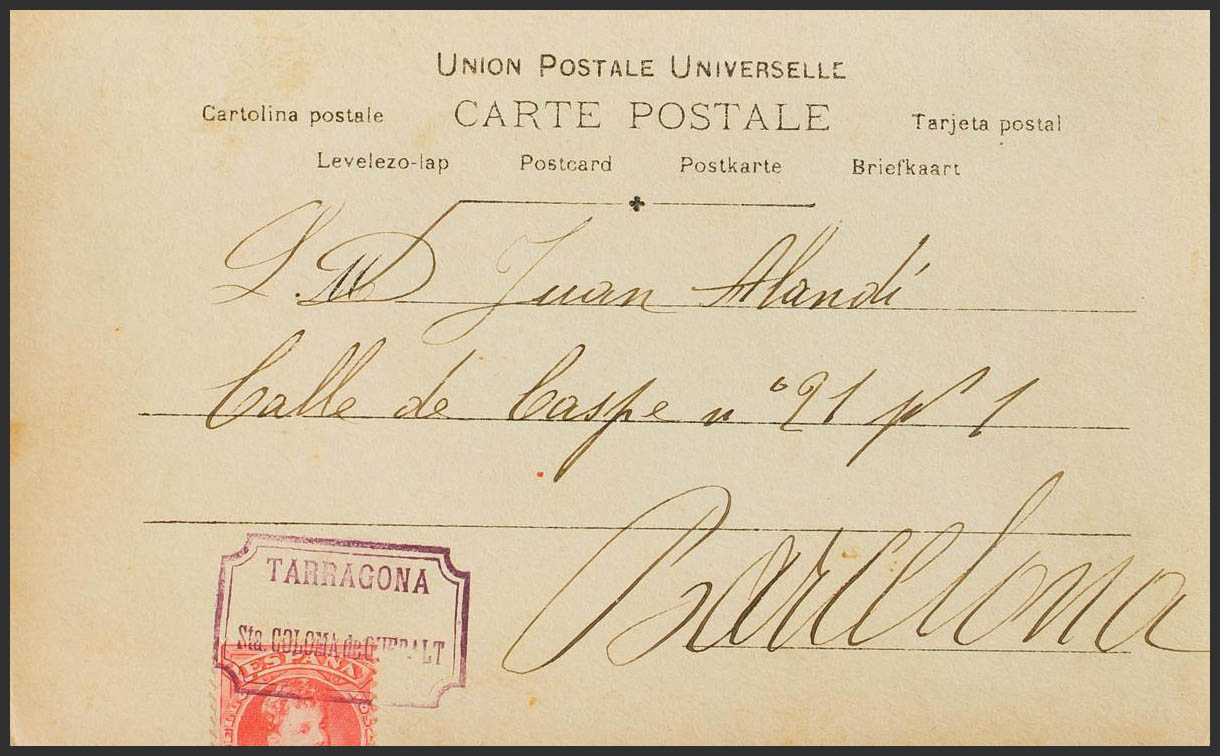 UNION POSTALE UNIVERSELLE
CARTE POSTALE
Cartolina postale
Tarjeta postal
Levelezo-lap Postcard Postkarte Briefkaart
Juan Alandí
Calle de Caspe nº 91 1
Barcelona
TARRAGONA
Sta. COLOMA de QUERALT
ESPAÑA